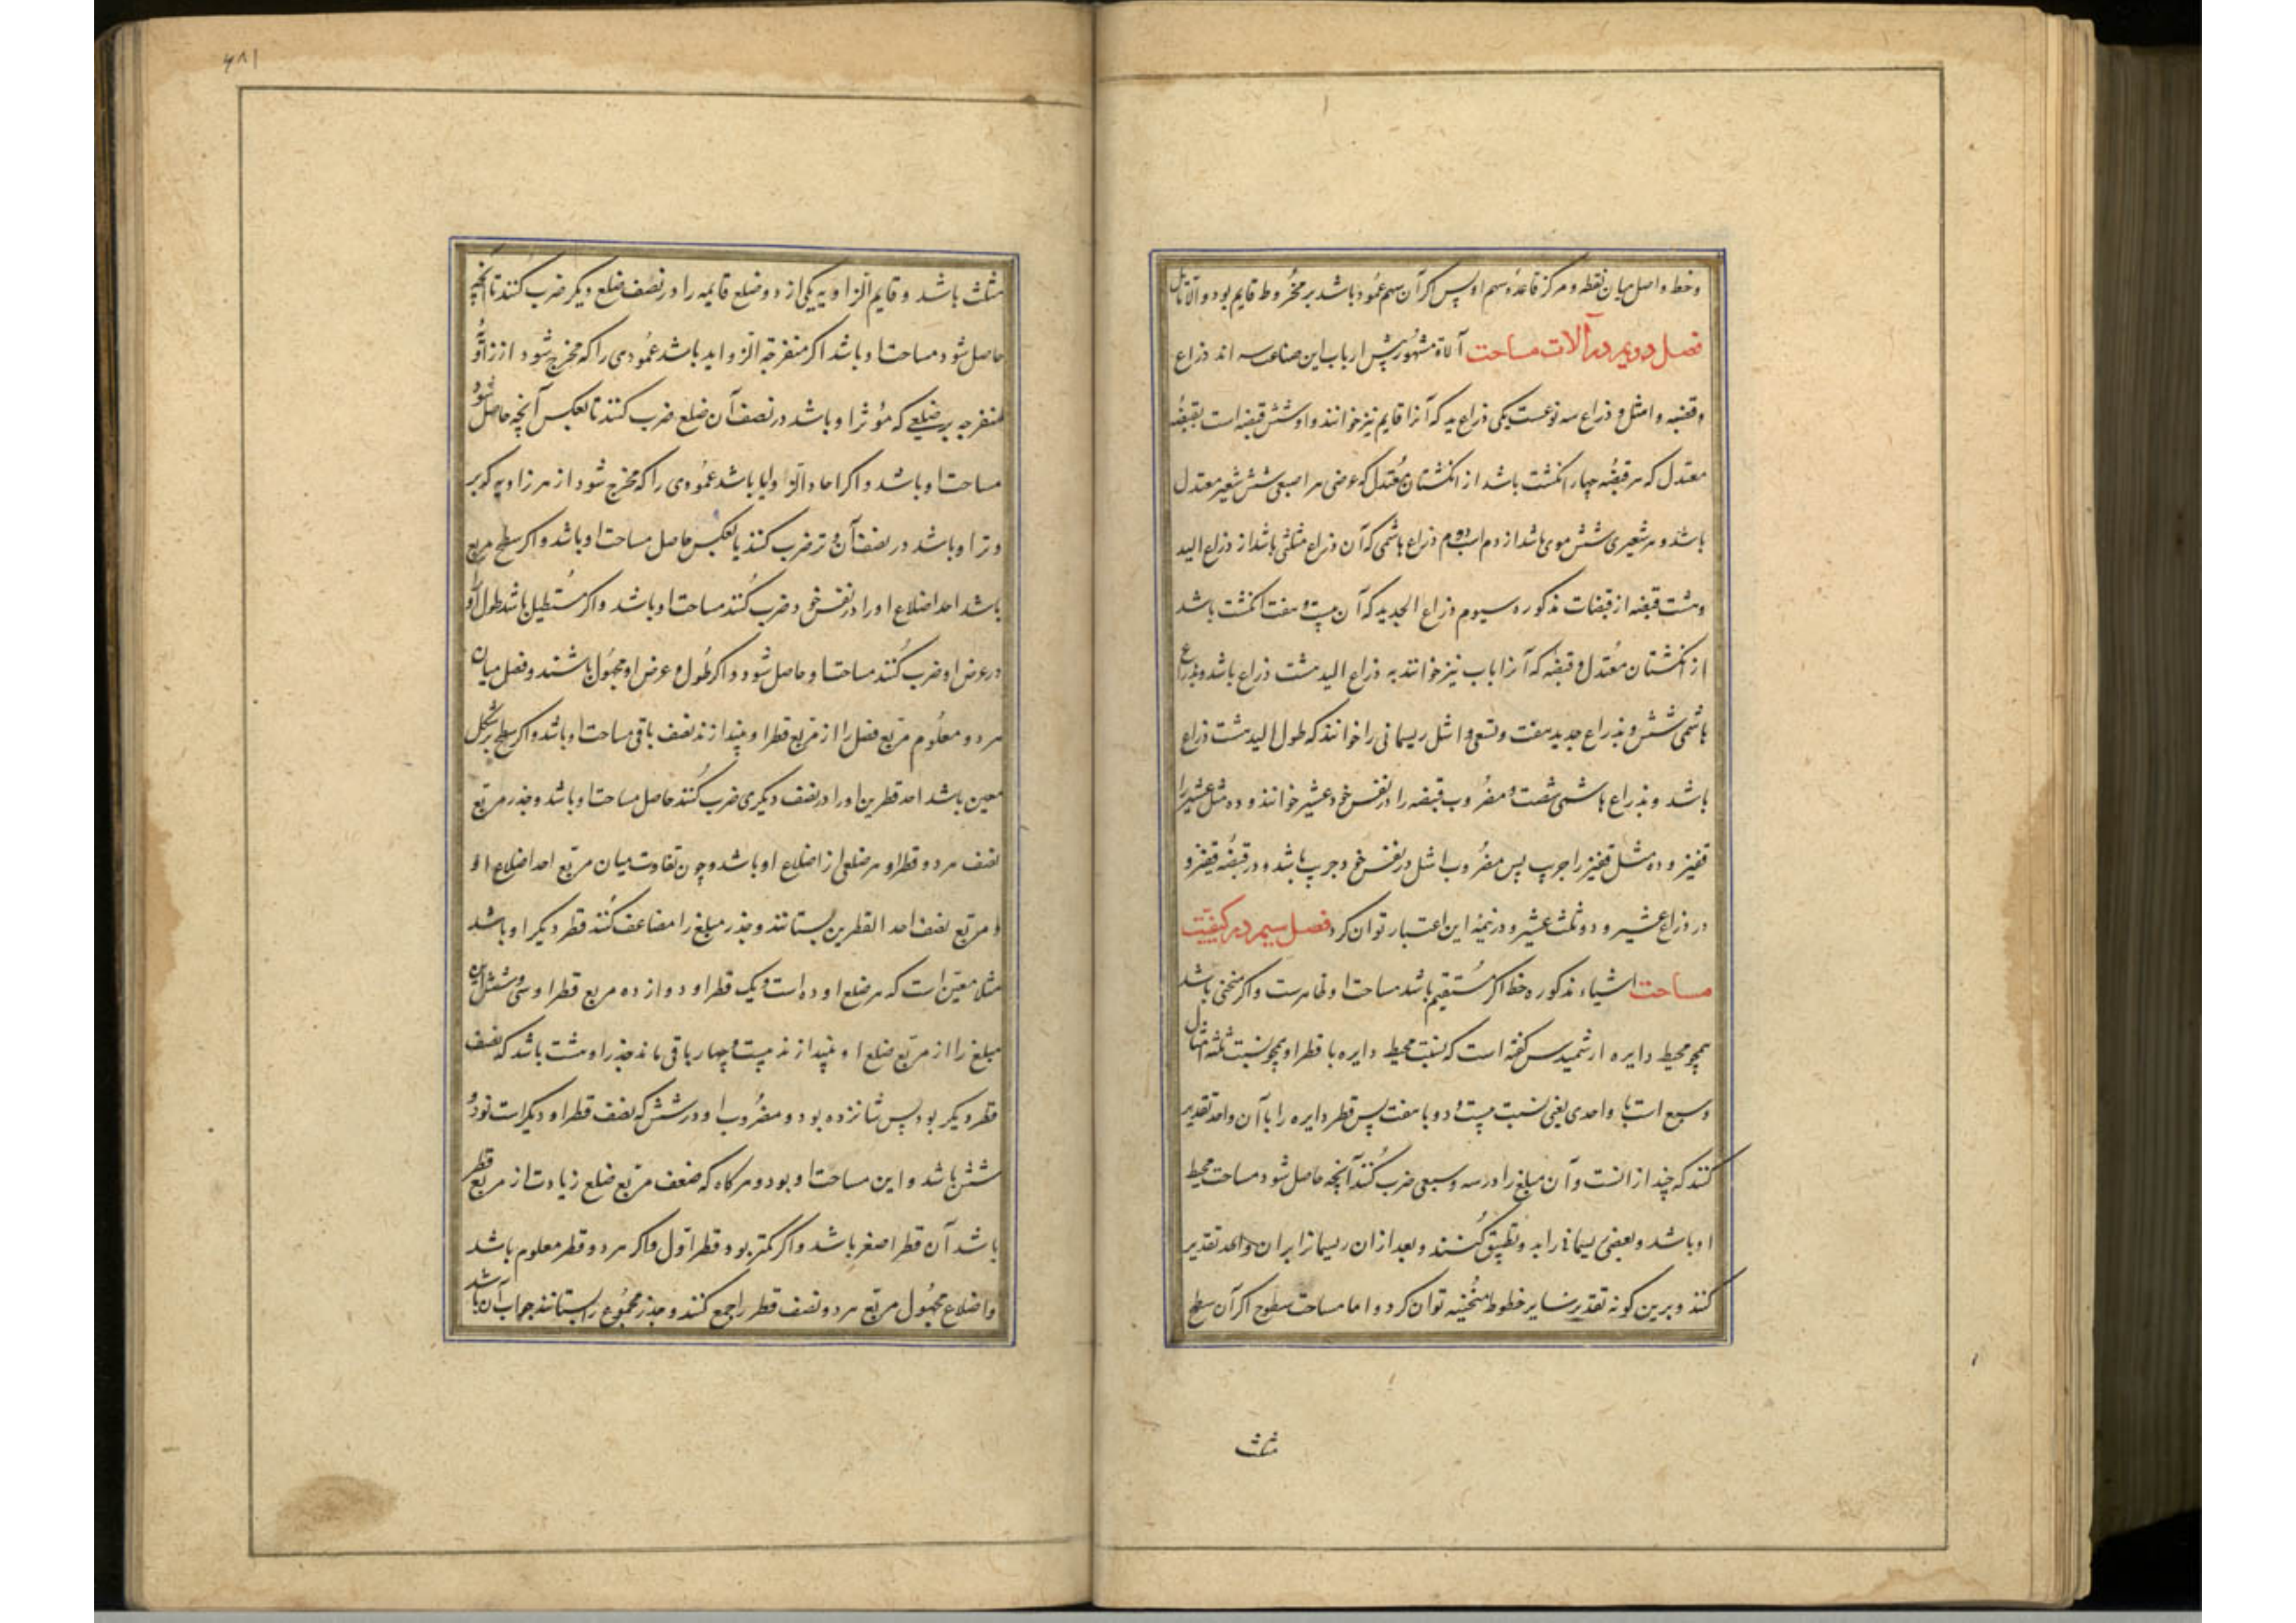 وخط واصل میان نقطه و مرکز قاعده سهم او پس اگر آن سهم عمود باشد بر مخروط قایم بود والا مائل
فصل دویم در آلات مساحت آلات مشهور پیش ارباب این صناعت سه اند ذراع
وقبضه واشل و ذراع سه نوعست یکی ذراع ید که آنرا قایم نیز خوانند و او شش قبضه است بقبضهٔ
معتدل که هر قبضه چهار انکشت باشد از انکشتان معتدل که عرض هر اصبعی شش شعیر معتدل
باشد و هر شعیری شش موی باشد از دم اسب دوم ذراع هاشمی که آن ذراع و ثلثی باشد از ذراع الید
وهشت قبضه از قبضات مذکوره سیوم ذراع الجدید که آن بیست و هفت انکشت باشد
از انکشتان معتدل و قبضه که آنرا باب نیز خوانند به ذراع الید هشت ذراع باشد و بذراع
هاشمی شش و بذراع جدید هفت و تسعی و اشل ریسمانی را خوانند که طول الید هشت ذراع
باشد و بذراع هاشمی شصت و مضروب قبضه را در نفس خود عشیر خوانند و ده مثل عشیر را
قفیز و ده مثل قفیز را جریب پس مضروب اشل در نفس خود جریب باشد و در قبضه قفیز و
در ذراع عشیر و دو ثلث عشیر و در نیمهٔ این اعتبار توان کرد فصل سیم در کیفیت
مساحت اشیاء مذکوره خط اگر مستقیم باشد مساحت او ظاهرست و اگر منحنی باشد
همچو محیط دایره ارشمیدس کفته است که نسبت محیط دایره با قطر او همچو نسبت ثلثه امثال
وسبع است با واحدی یعنی نسبت بیست و دو با هفت پس قطر دایره را با آن واحد تقدیر
کنند که چند از انست و آن مبلغ را در سه و سبعی ضرب کنند آنچه حاصل شود مساحت محیط
او باشد و بعضی ریسمانی را بدو تطبیق کنند و بعد از ان ریسمانرا بران واحد تقدیر
کنند و برین کونه تقدیر سایر خطوط منحنیه توان کرد و اما مساحت سطوح اگر آن سطح
مثلث
۴۸۱
مثلث باشد و قایم الزاویه یکی از دو ضلع قایمه را در نصف ضلع دیکر ضرب کنند تا آنچه
حاصل شود مساحت او باشد اکر منفرجة الزوایه باشد عمودی را که مخرج شود از زاویهٔ
منفرجه بر ضلعی که موتر او باشد در نصف آن ضلع ضرب کنند تا بعکس آنچه حاصل شود
مساحت او باشد و اکر احاد الزوایا باشد عمودی را که مخرج شود از هر زاویه که بر
وتر او باشد در نصف آن وتر ضرب کنند یا بعکس حاصل مساحت او باشد و اکر سطح مربع
باشد احد اضلاع او را در نفس خود ضرب کنند مساحت او باشد و اکر مستطیل باشد طول او را
در عرض او ضرب کنند مساحت او حاصل شود و اکر طول و عرض او مجهول باشند و فضل میان
هر دو معلوم مربع فضل را از مربع قطر او بیندازند نصف باقی مساحت او باشد و اکر سطح بر شکل
معین باشد احد قطرین او را در نصف دیکری ضرب کنند حاصل مساحت او باشد و جذر مربع
نصف هر دو قطر او هر ضلعی از اضلاع او باشد و چون تفاوت میان مربع احد اضلاع او
و مربع نصف احد القطرین بستانند و جذر مبلغ را مضاعف کنند قطر دیکر او باشد
مثلا معین است که هر ضلع او ده است و یک قطر او دوازده مربع قطر او سی و شش این
مبلغ را از مربع ضلع او بیندازند بیست و چهار باقی ماند جذر او هشت باشد که نصف
قطر دیکر بود پس شانزده بود و مضروب او در شش که نصف قطر او دیکر است نود و
شش باشد و این مساحت او بود و هرکاه که ضعف مربع ضلع زیادت از مربع قطر
باشد آن قطر اصغر باشد و اکر کمتر بود قطر اول و اکر هر دو قطر معلوم باشد
و اضلاع مجهول مربع هر دو نصف قطر را جمع کنند و جذر مجموع را بستانند جواب آن باشد